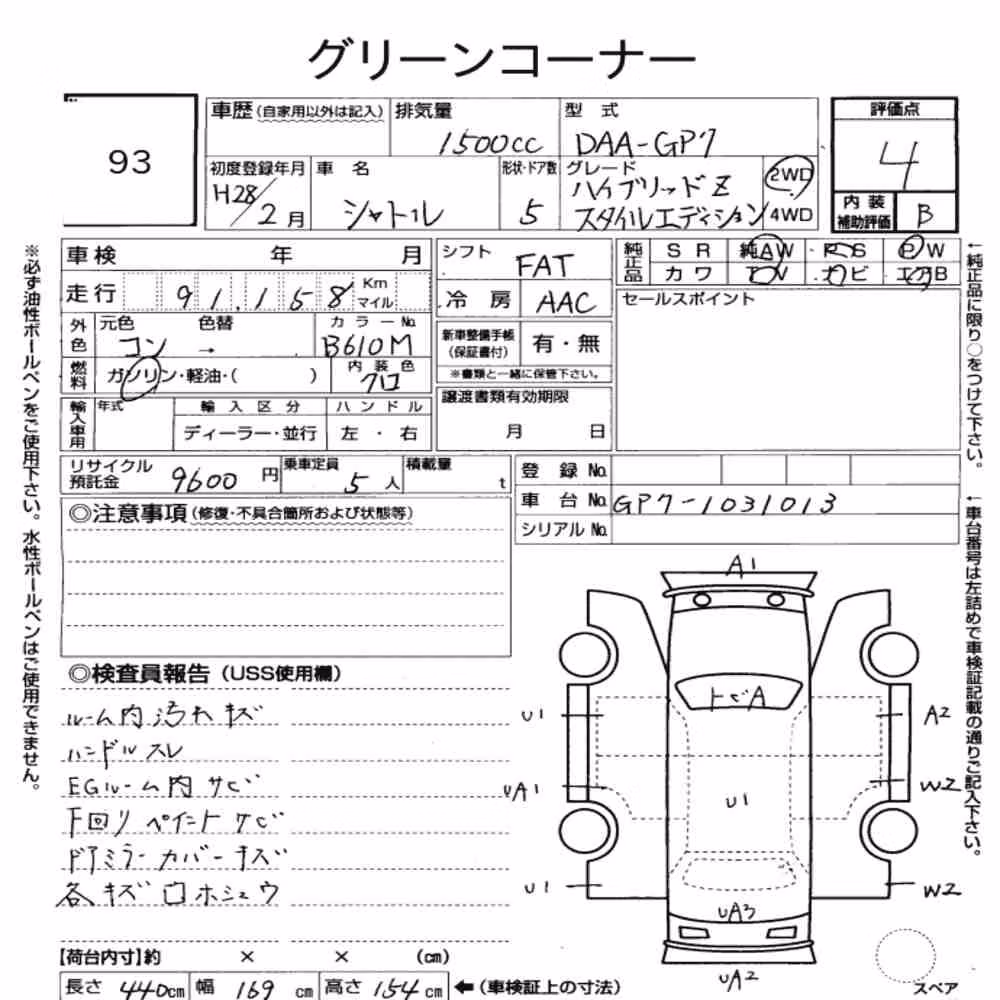 グリーンコーナー
93
車歴(自家用以外は記入)
排気量
1500cc
型式
DAA-GP7
評価点
4
内装補助評価
B
初度登録年月
H28/2月
車名
シャトル
形状・ドア数
5
グレード
ハイブリッドZ
スタイルエディション
2WD
4WD
車検 年 月
走行 91,158 Km マイル
シフト
FAT
冷房 AAC
純正品
SR 純AW PS PW
カワ TV ナビ エアB
セールスポイント
外色
元色 色替 カラーNo.
コン → B610M
燃料
ガソリン・軽油・( )
内装色
クロ
新車整備手帳(保証書付)
有・無
※書類と一緒に保管下さい。
譲渡書類有効期限
月 日
輸入車用
年式 輸入区分 ハンドル
ディーラー・並行 左・右
リサイクル預託金
9600円
乗車定員
5人
積載量
t
登録No.
車台No. GP7-1031013
シリアルNo.
◎注意事項(修復・不具合箇所および状態等)
◎検査員報告(USS使用欄)
ルーム内汚れキズ
ハンドルスレ
EGルーム内サビ
下回りペイントサビ
ドアミラーカバーキズ
各キズ口ホシュウ
A1
トビA
U1
A2
UA1
U1
W2
U1
W2
UA3
UA2
スペア
【荷台内寸】約 × × (cm)
長さ 440cm 幅 169cm 高さ 154cm ←(車検証上の寸法)
※必ず油性ボールペンをご使用下さい。水性ボールペンはご使用できません。
←純正品に限り○をつけて下さい。
←車台番号は左詰めで車検証記載の通りご記入下さい。